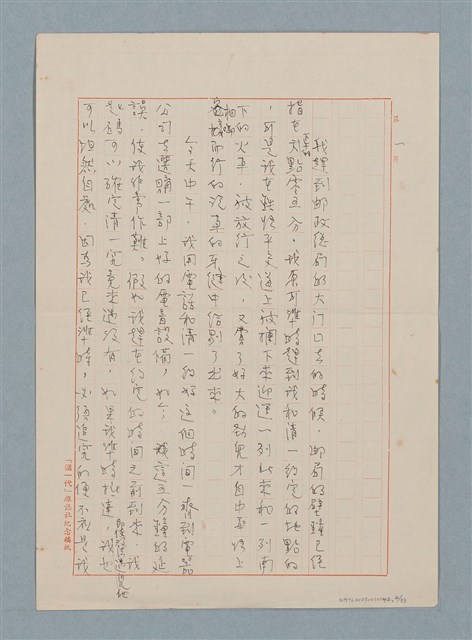 第一頁
我趕到郵政總局的大門口去的時候，郵局的壁鐘已經
指在六點零五分。我原可準時趕到我和清一約定的地點的
，可是我在鐵路平交道上被攔下來迎送一列北來和一列南
下的火車，被放行之後，又費了好大的勁兒才自中華路上
相向而行的汽車的車縫中給剔了出來。
今天中午，我用電話和清一約好這個時間一齊到電器
公司去選購一部上好的電音設備，如今，我這五分鐘的延
誤，使我作事作難。假如我趕在約定的時間之前到來，我
起碼可以確定清一究竟來過沒有，如果我準時抵達，我也
可以坦然自處，因為我已經準時，必須追究的便不在是我
「這一代」雜誌社紀念稿紙